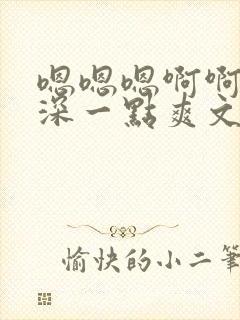 嗯嗯嗯啊啊
深一點爽文
愉快的小二筆